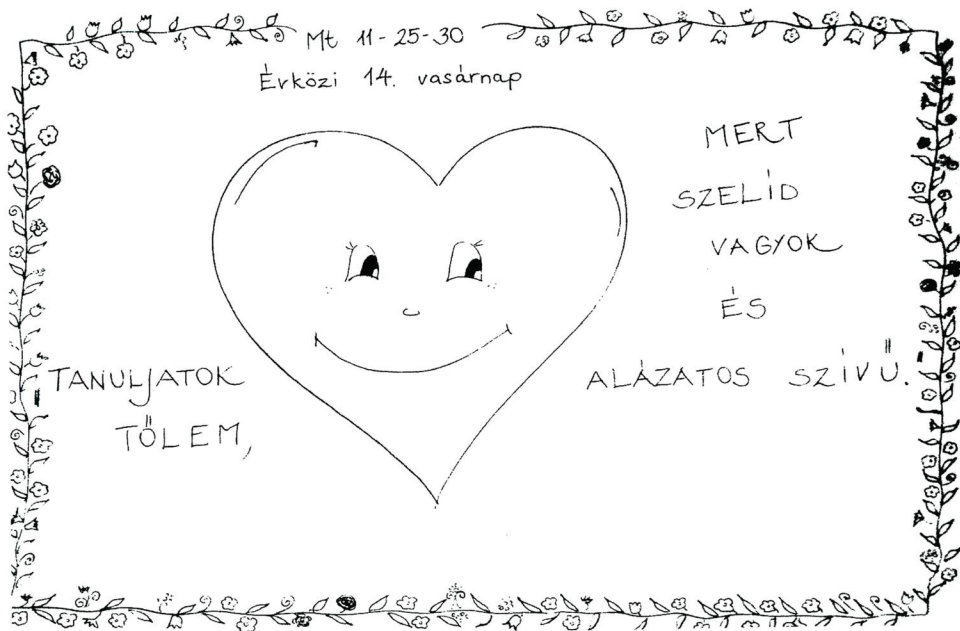 Mt 11-25-30
Évközi 14. vasárnap
TANULJATOK
TŐLEM,
MERT
SZELÍD
VAGYOK
ÉS
ALÁZATOS SZÍVŰ."